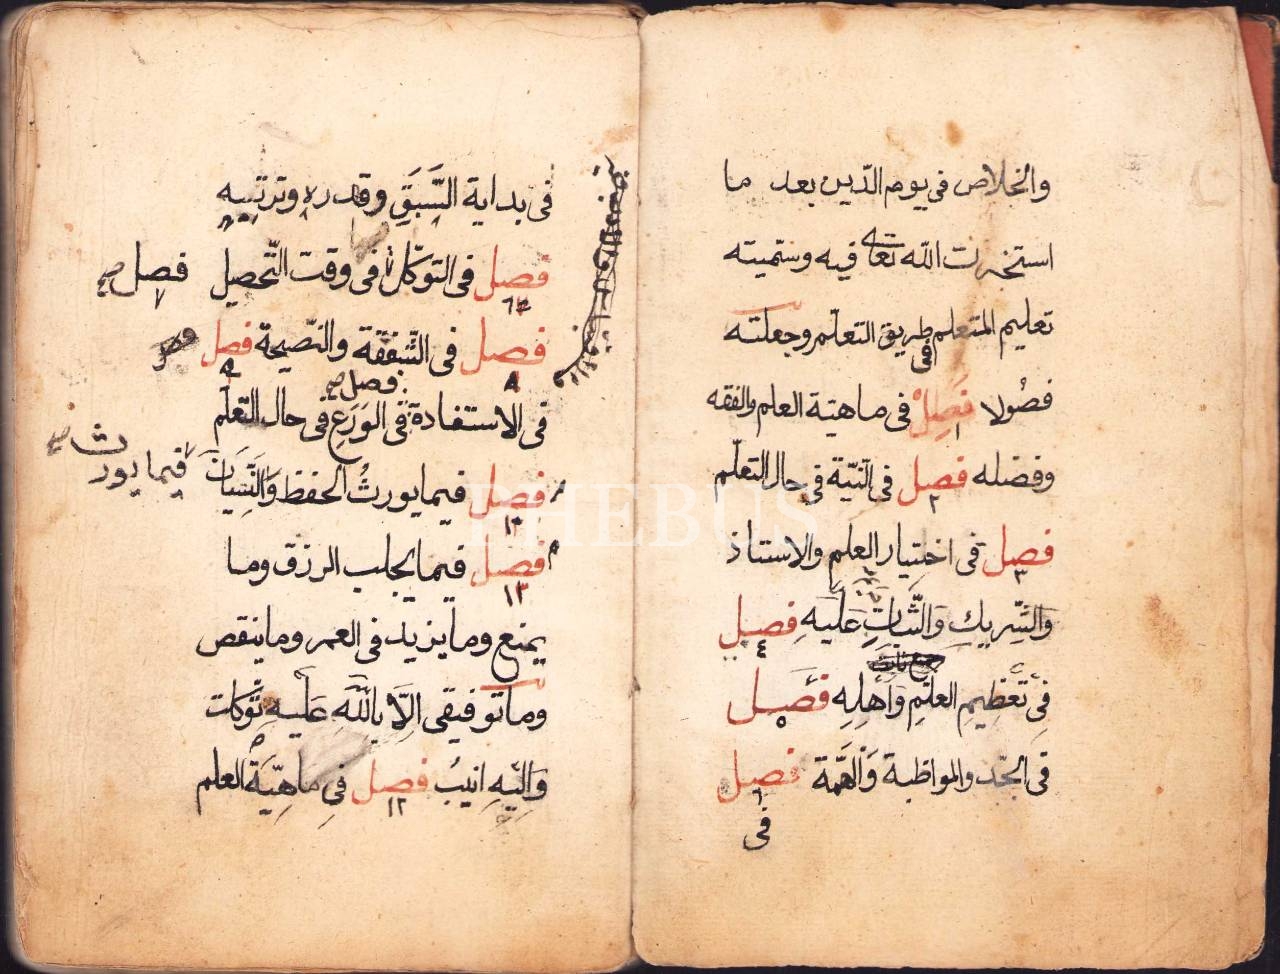 والخلاص في يوم الدين بعد ما
استخرت الله تعالى فيه وسميته
تعليم المتعلم طريق التعلم وجعلته
فصولا فصل في ماهية العلم والفقه
١
وفضله فصل في النية في حال التعلم
٢
فصل في اختيار العلم والاستاذ
٣
والشريك والثبات عليه فصل
٤
في تعظيم العلم واهله فصل
٥
في الجد والمواظبة والهمة فصل
٦
في
في بداية السبق وقدره وترتيبه
فصل في التوكل في وقت التحصيل فصل
٧
فصل في الشفقة والنصيحة فصل
٨ ٩
فصل
في الاستفادة في الورع في حال التعلم
فيما يورث
فصل فيما يورث الحفظ والنسيان
١٢
فصل فيما يجلب الرزق وما
١٣
يمنع وما يزيد في العمر وما ينقص
وما توفيقي الا بالله عليه توكلت
واليه انيب فصل في ماهية العلم
١٢
PHEBUS